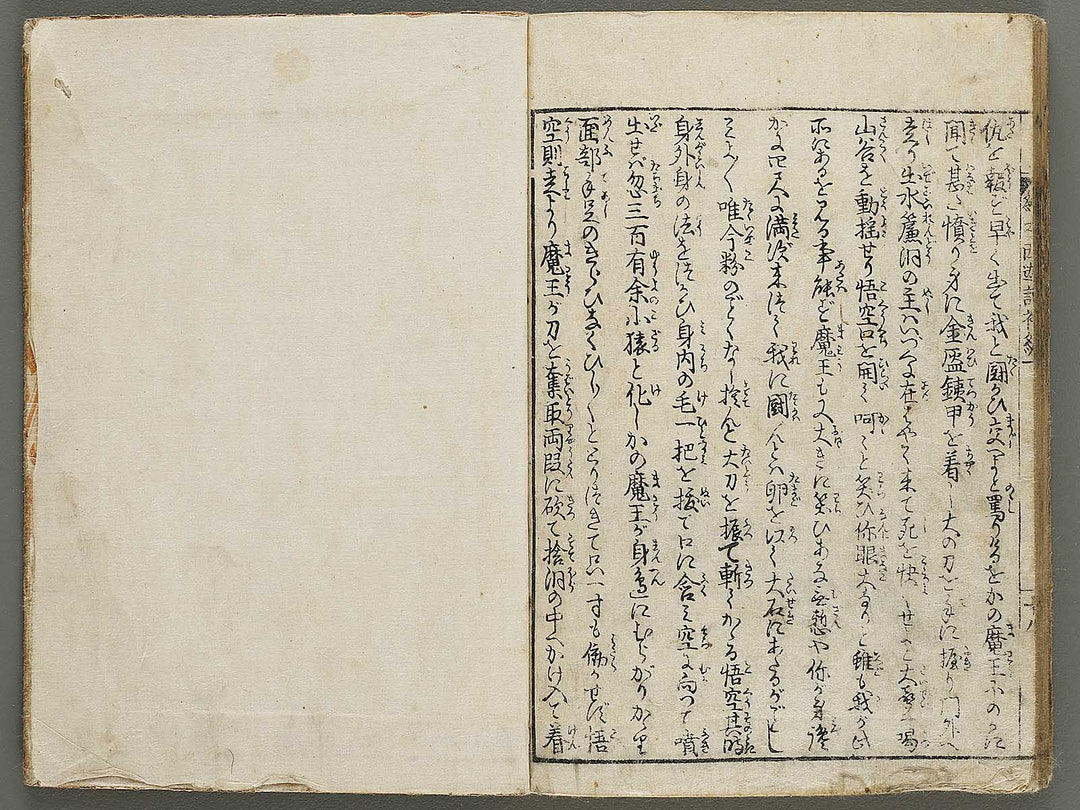 仇を報ぜん早く出て我と闘かひ交へよと罵りけるをかの魔王ふのかに
聞て甚だ憤り身に金盔鉄甲を着し大の刀を手に握り門外へ
走り出水簾洞の主はいづくに在はやく来て死を快くせよと大声に喝
山谷を動揺せり悟空口を開て呵〻と笑ひ你眼大なりと雖も我が此
所にあるを見る事能ず魔王も又大きに笑ひあな無慙や你が身終
かに四尺に満ず来つて我に闘んとは卵を以て大石にあたるがごとし
唯今粉のごとくなり捨んと大刀を振て斬てかゝる悟空其時
身外身の法をつかひ身内の毛一把を抜て口に含み空に向つて噴
出せば忽三百有余小猿と化しかの魔王が身辺にむらがりかゝり
面部手足のきらひなくひし〳〵ととりつきて只一寸も働かせず悟
空則走より魔王が刀を奪取両段に砍て捨洞の中へかけ入て着